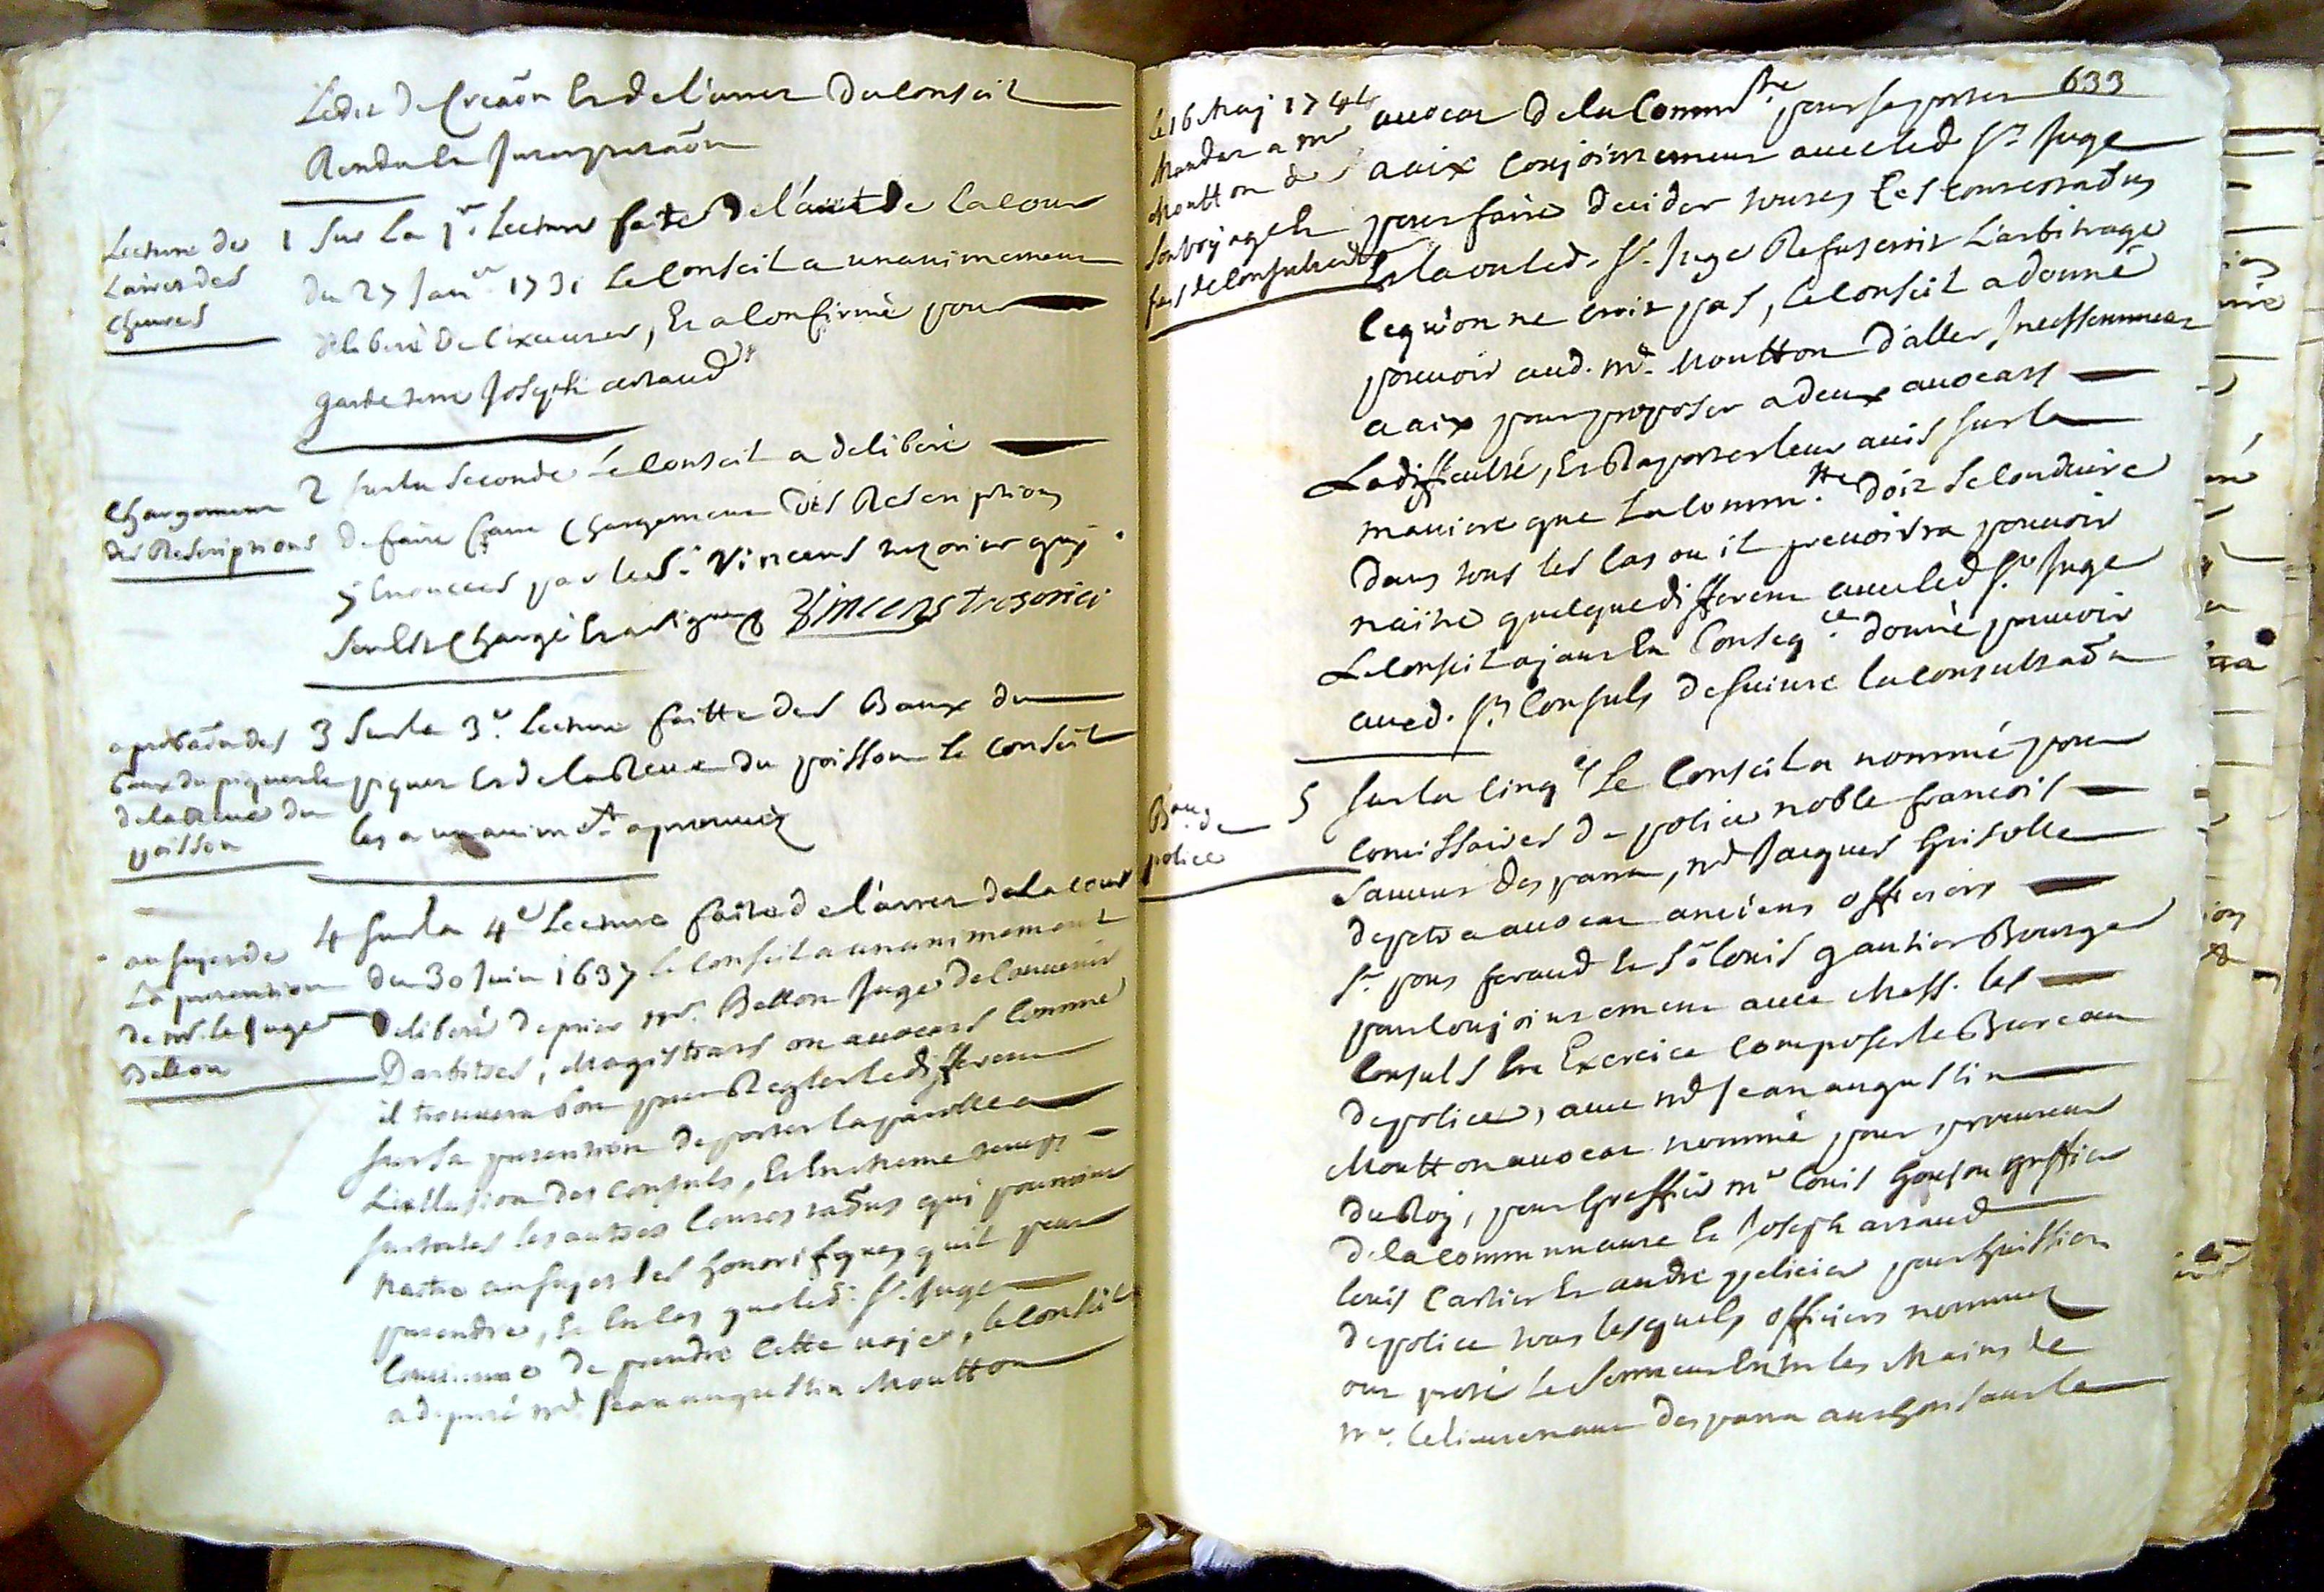 Ledit de Creaõn Et de l'arret du Conseil
Rendu En Interpretaõn
Lecture de
L'arret des
Chevres
1 Sur La 1re Lecture faite de l'arret de La cour
du 27 Janer 1731 Le Conseil a unanimement
déliberé De l'executer, Et a Confirmé pour
garde terre Joseph arnaud
Chargement
des Rescriptions
2 sur la seconde Le Conseil a deliberé
de faire faire Chargement des Rescriptions
y Enoncées par le Sr Vincens trezorier quy
S'en Est Chargé Et a signé Vincens tresorier
aprobaõn des
baux du piquet Et
de la Reve du
poisson
3 Sur la 3e Lecture faitte des Baux du
piquet Et de la Reve du poisson Le Conseil
les a unanimt aprouvéz
au sujet de
La pretention
de mr le Juge
Bellon
4 sur la 4e Lecture faite de l'arret de La cour
du 30 Juin 1637 le Conseil a unanimement
Deliberé de prier mr Bellon Juge de Convenir
D'arbitres, Magistrats ou avocats Comme
il trouvera bon pour Regler le different
sur sa pretention de porter la parolle a
L'exclusion des Consuls, Et En meme temps
sur toutes les autres Contestaõns qui pourroint
naitre au sujet des honorifiques quil peut
pretendre, Et En Cas que led. Sr Juge
Convienne de prendre Cette voje, le Conseil
a deputé md Jean augustin Moutton
633
le 16 May 1744
Mandat a mr
Moutton de
Son voyage Et
frais de Consultaõn
avocat de la Commté pour se porter
a aix Conjointement avec led Sr Juge
pour faire decider toutes Les contestaõns
Et la ou led. Sr Juge Refuseroit L'arbitrage
Ce qu'on ne croit pas, le Conseil a donné
pouvoir aud. md Moutton d'aller Incessamment
a aix pour proposer a deux avocats
La difficulté, Et Raporter leur avis sur la
maniere que La Commté doit Se Conduire
dans tous les Cas ou il prevoirra pouvoir
naitre quelque different avec led Sr Juge
Le Conseil ajant En Conseqce donné pouvoir
aud. Srs Consuls de suivre la Consultaõn
Bau de
police
5 sur la Cinqe Le Conseil a nommé pour
Comissaires de police noble françois
Sauveur Desparra, md Jacques Grisolle
avocat anciens officiers
Sr pons feraud Et Sr louis gautier Bourge
pour Conjointement avec Mess. les
Consuls En Exercice Composer le Bureau
de police, avec md Jean augustin
Moutton avocat nommé pour procureur
du Roy, pour Greffier me louis Gouson greffier
de la communauté Et Joseph arnaud
louis Cartier Et andre pelicier pour huissiers
de police tous lesquels officiers nommez
ont preté le Serment Entre les Mains de
mr le lieutenant Desparra